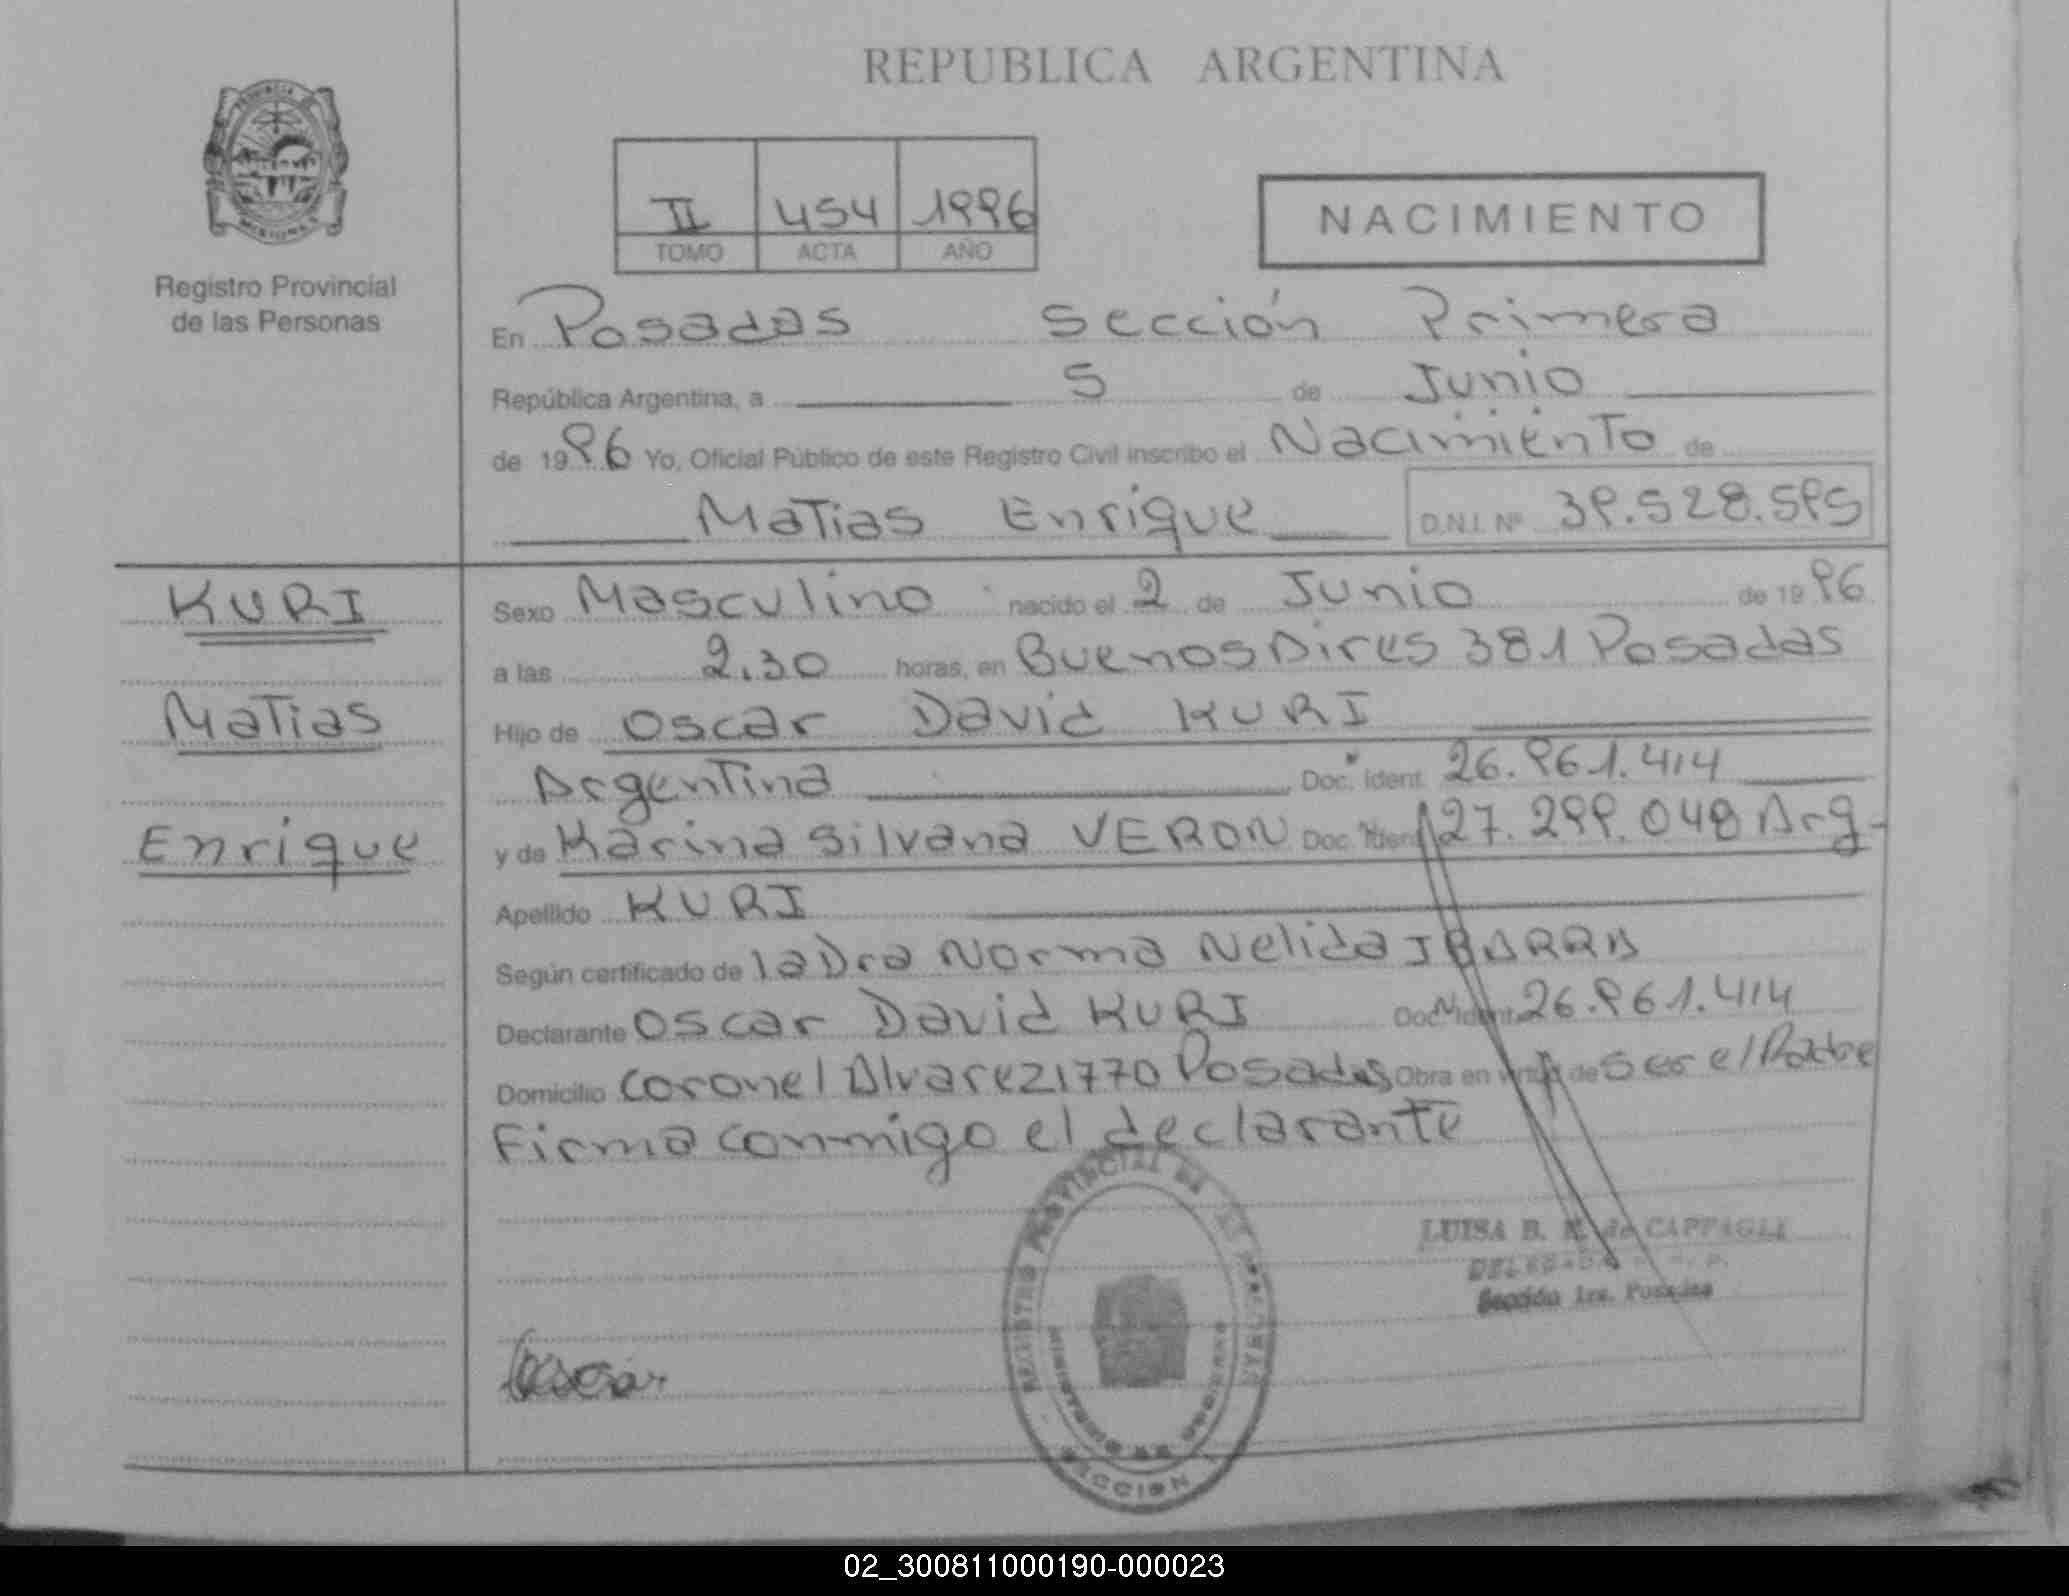 REPUBLICA ARGENTINA
PROVINCIA DE
MISIONES
Registro Provincial
de las Personas
II 454 1996
TOMO ACTA AÑO
NACIMIENTO
En Posadas Sección Primera
República Argentina, a 5 de Junio
de 1996 Yo, Oficial Público de este Registro Civil inscribo el Nacimiento de
Matias Enrique D.N.I. Nº 39.528.595
KURI
Matias
Enrique
Sexo Masculino nacido el 2 de Junio de 1996
a las 2.30 horas, en Buenos Aires 381 Posadas
Hijo de Oscar David KURI
Argentina Doc. Ident. 26.961.414
y de Karina Silvana VERON Doc. Ident. 27.299.048 Arg-
Apellido KURI
Según certificado de la Dra Norma Nelida IBARRA
Declarante Oscar David KURI Doc. Ident. 26.961.414
Domicilio Coronel Alvarez 1770 Posadas Obra en virtud de Ser el Padre
Firma conmigo el declarante
REGISTRO PROVINCIAL DE LAS PERSONAS
MINISTERIO DE GOBIERNO
SECCION 1
LUISA B. de CAPPAGLI
DELEGADA R. P. P.
Sección 1ra. Posadas
02_300811000190-000023